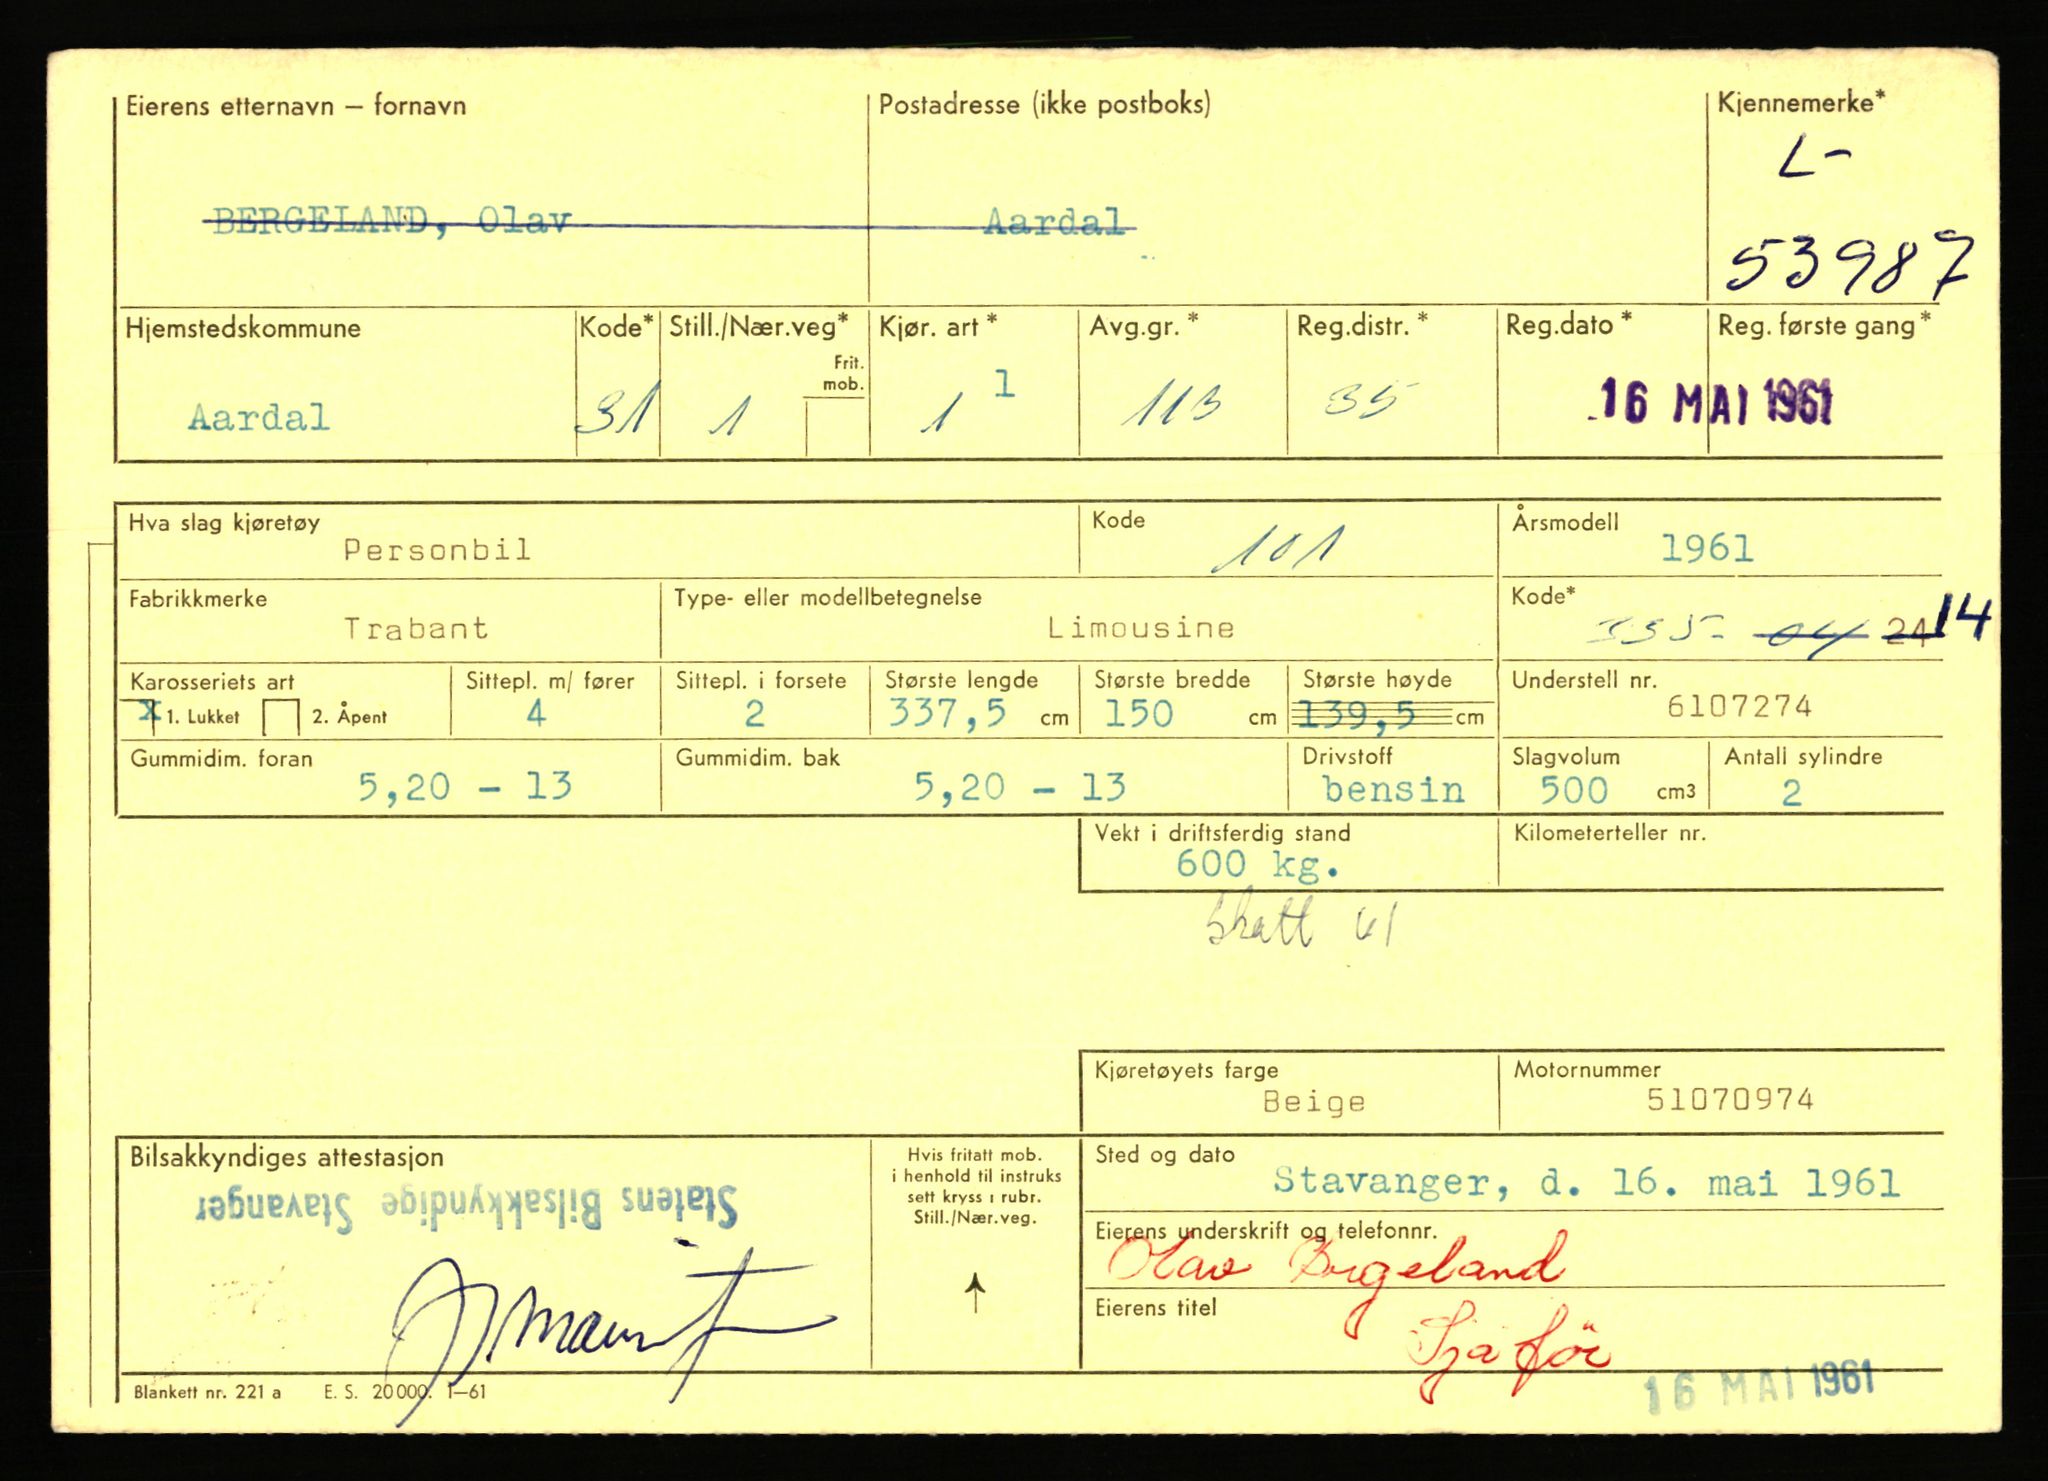 Eierens etternavn – fornavn
Postadresse (ikke postboks)
Kjennemerke*
L-
BERGELAND, Olav
Aardal
53987
Hjemstedskommune
Kode*
Still./Nær.veg*
Kjør. art*
Avg.gr.*
Reg.distr.*
Reg.dato*
Reg. første gang*
Frit.
mob.
Aardal
31
1
1
1
113
35
16 MAI 1961
Hva slag kjøretøy
Personbil
Kode
101
Årsmodell
1961
Fabrikkmerke
Trabant
Type- eller modellbetegnelse
Limousine
Kode*
335- 04 24 14
Karosseriets art
X 1. Lukket
2. Åpent
Sittepl. m/ fører
4
Sittepl. i forsete
2
Største lengde
337,5 cm
Største bredde
150 cm
Største høyde
139,5 cm
Understell nr.
6107274
Gummidim. foran
5,20 - 13
Gummidim. bak
5,20 - 13
Drivstoff
bensin
Slagvolum
500 cm3
Antall sylindre
2
Vekt i driftsferdig stand
600 kg.
Kilometerteller nr.
Skatt 61
Kjøretøyets farge
Beige
Motornummer
51070974
Bilsakkyndiges attestasjon
Statens Bilsakkyndige Stavanger
Hvis fritatt mob.
i henhold til instruks
sett kryss i rubr.
Still./Nær.veg.
Sted og dato
Stavanger, d. 16. mai 1961
Eierens underskrift og telefonnr.
Olav Bergeland
Eierens titel
Sjåfør
Blankett nr. 221 a E. S. 20000. 1–61
16 MAI 1961